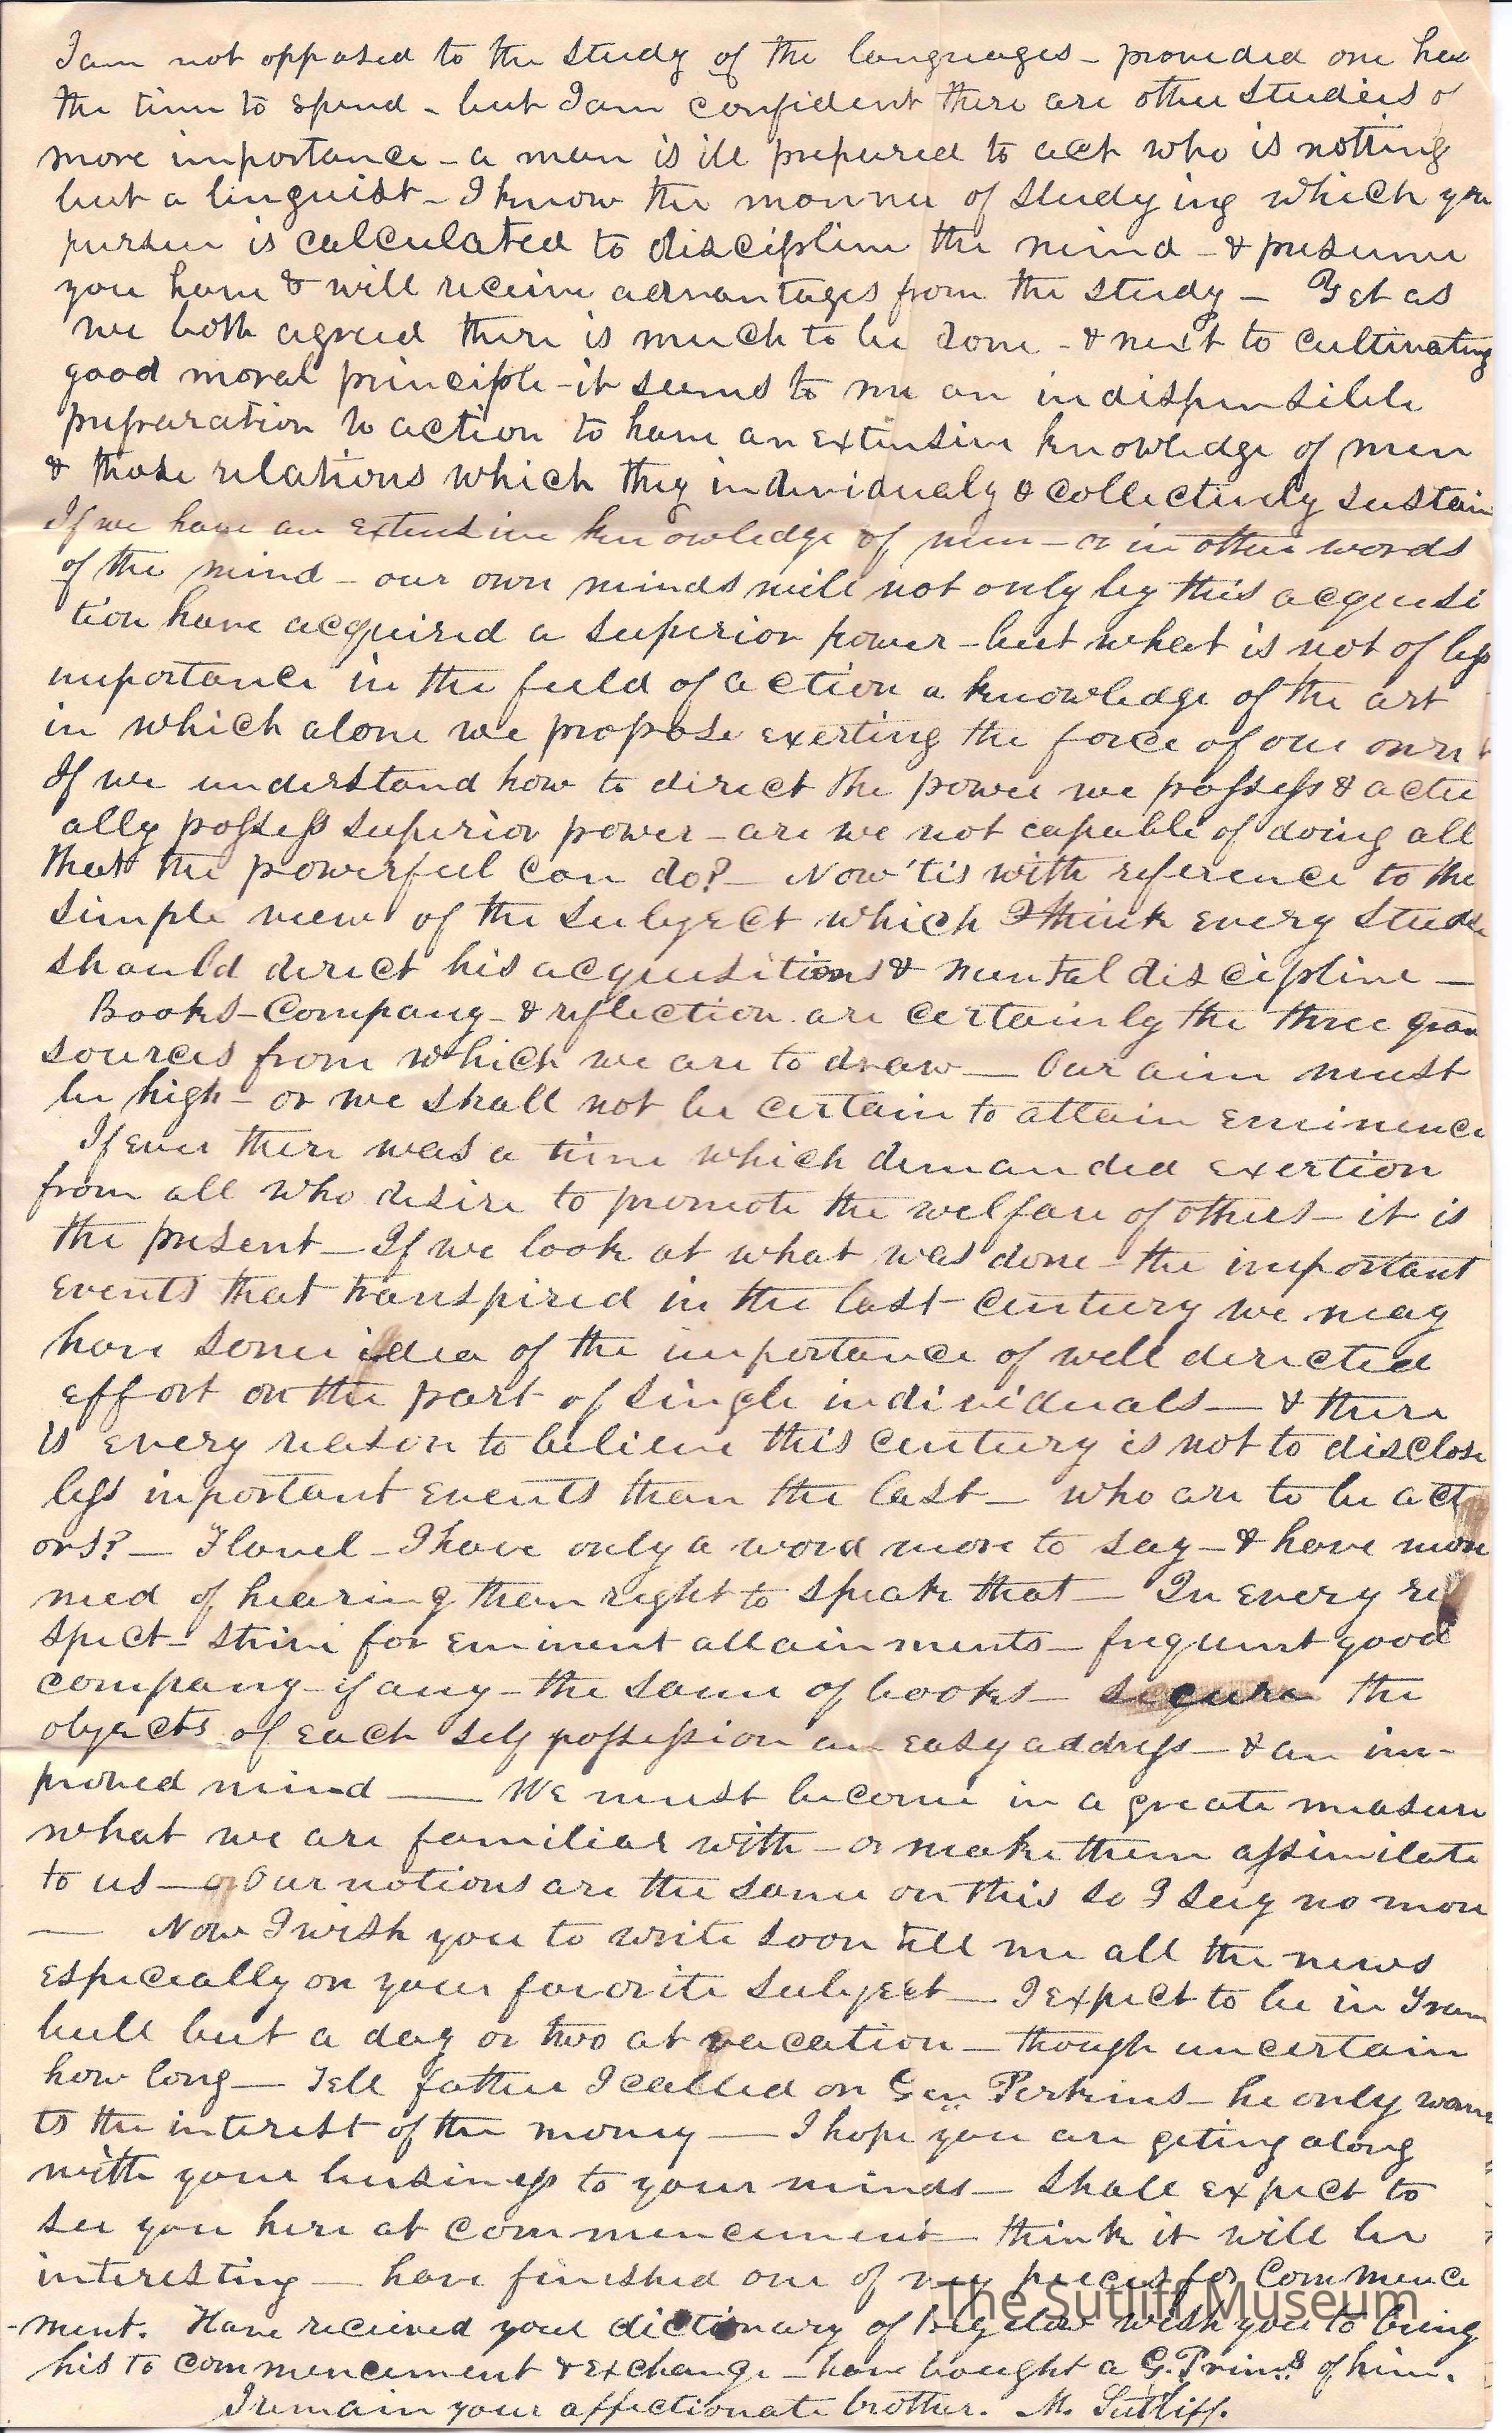 I am not opposed to the study of the languages - provided one has
the time to spend - but I am confident there are other studies of
more importance - a man is ill prepared to act who is notting
but a linguist - I know the manner of studying which you
pursue is calculated to discipline the mind - & presume
you have & will receive advantages from the study - Yet as
we both agreed there is much to be done - & next to cultivating
good moral principle - it seems to me an indispensible
preparation to action to have an extensive knowledge of men
& those relations which they individualy & collectively sustain
If we have an extensive knowledge of men - or in other words
of the mind - our own minds will not only by this acquisi
tion have acquired a superior power - but what is not of less
importance in the field of action a knowledge of the art
in which alone we propose exerting the force of our own
If we understand how to direct the power we possess & actu
ally possess superior power - are we not capable of doing all
that the powerful can do? - Now 'tis with reference to the
simple view of the subject which I think every stude
should direct his acquisitions & mental discipline -
Books - Company - & reflection are certainly the three gran
sources from which we are to draw - Our aim must
be high - or we shall not be certain to attain eminence
If ever there was a time which demanded exertion
from all who desire to promote the welfare of others - it is
the present - If we look at what was done - the important
events that transpired in the last century we may
have some idea of the importance of well directed
effort on the part of single individuals - & there
is every reason to believe this century is not to disclose
less inportant events than the last - who are to be act
ors? - Flavel - I have only a word more to say - & have more
need of hearing than right to speak that - In every re
spect - strive for eminent attainments - frequent good
company - if any - the same of books - secure the
objects of each self possession an easy address - & an im-
proved mind - We must become in a greate measure
what we are familiar with - or make them assimilate
to us - Our notions are the same on this so I say no more
- Now I wish you to write soon tell me all the news
especially on your favorite subject - I expect to be in Trum
bull but a day or two at vacation - though uncertain
how long - Tell father I called on Gen Perkins - he only wan
ts the interest of the money - I hope you are geting along
with your business to your minds - shall expect to
see you here at commencement - think it will be
interesting - have finished one of my pieces for Commence
-ment. Have received your dictionary of Bigelow wish you to bring
his to commencement & exchange - have bought a G. of him.
I remain your affectionate brother. M. Sutliff.
The Sutliff Museum